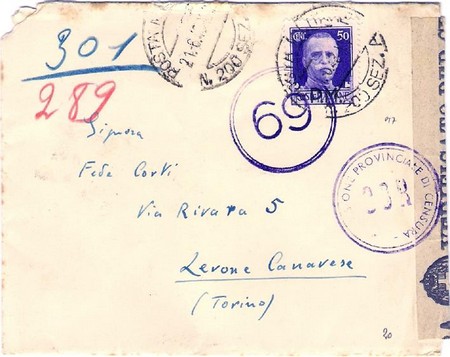 301
289
POSTA M
N. 200 SEZ. A
CENT. 50
P.M.
N. 200 SEZ. A
69
Signora
Fede Corti
Via Rivara 5
Levone Canavese
(Torino)
ONE PROVINCIALE DI CENSURA
20